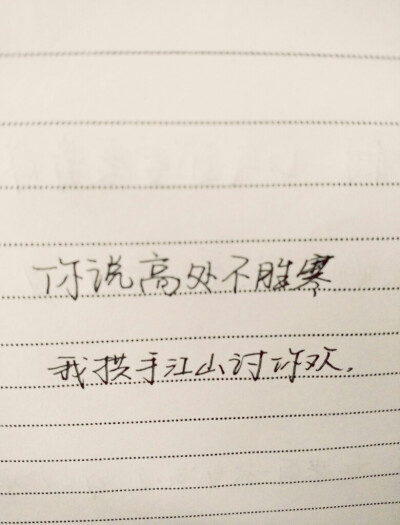 你说高处不胜寒
我拱手江山讨你欢.